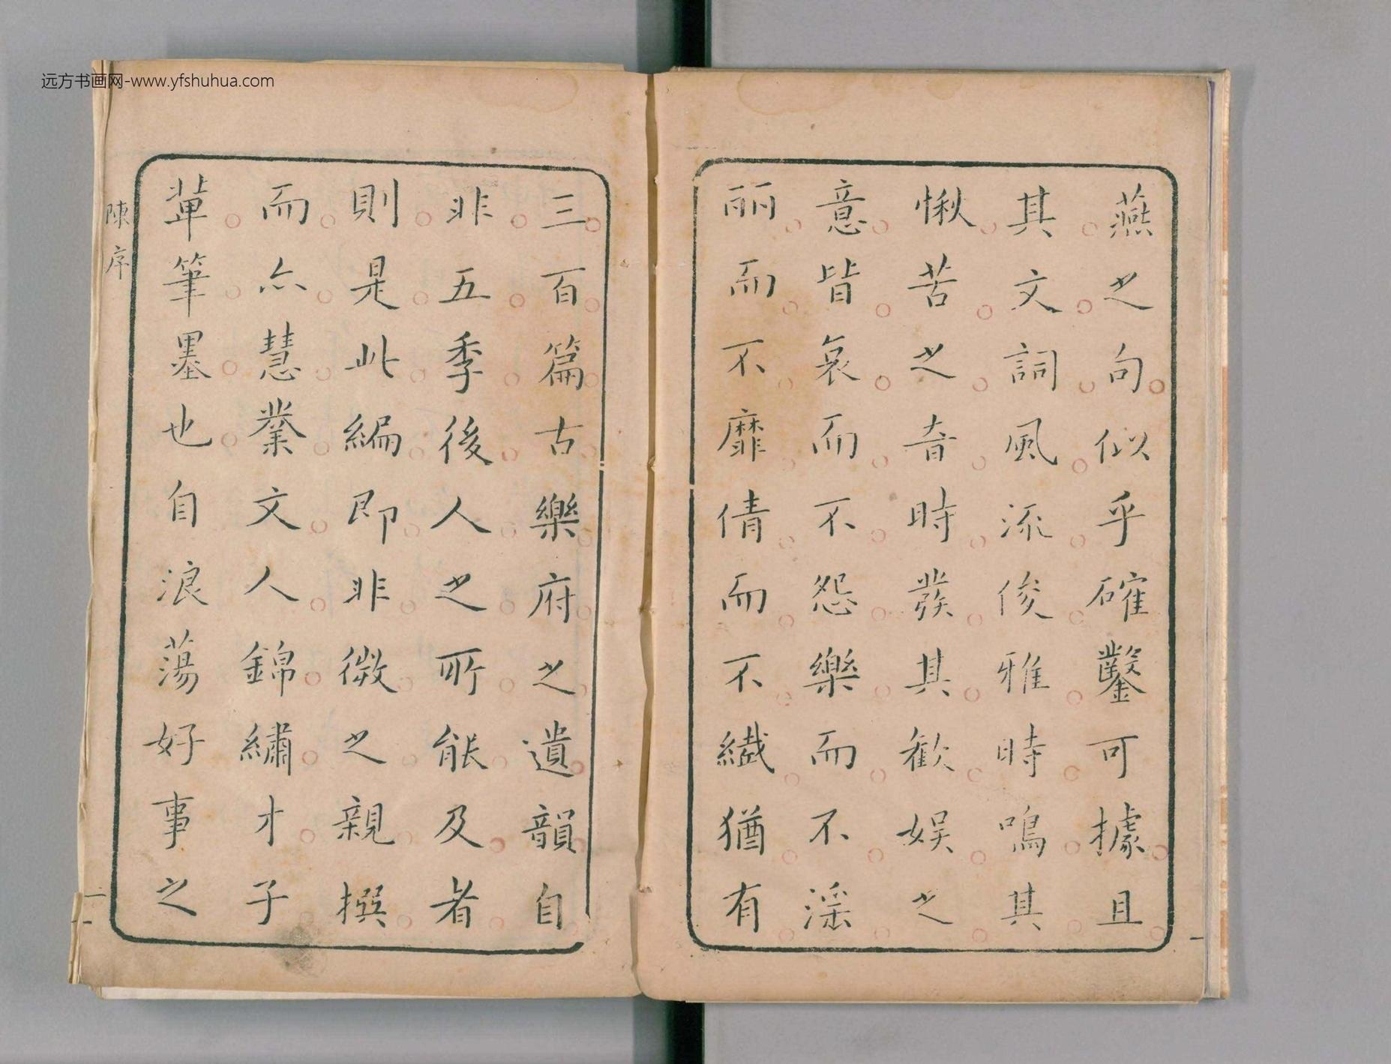 远方书画网-www.yfshuhua.com
燕之句似乎確鑿可據且
其文詞風流俊雅時鳴其
愀苦之音時發其歡娱之
意皆哀而不怨樂而不淫
丽而不靡倩而不纎猶有
三百篇古樂府之遺韻自
非五季後人之所能及者
則是此編即非微之親撰
而亦慧業文人錦繡才子
軰筆墨也自浪蕩好事之
陳序
二